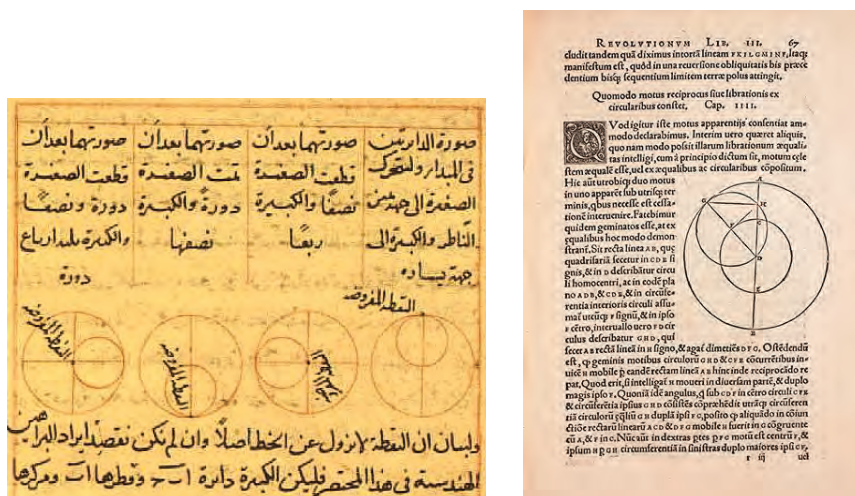 صورة الدائرتين
في المبدأ وليتحرك
الصغيرة الى جهة يمين
الناظر والكبيرة الى
جهة يساره
صورتهما بعد أن
قطعت الصغيرة
نصفاً والكبيرة
ربعاً
صورتهما بعد أن
تمت الصغيرة
دورةً والكبيرة
نصفها
صورتهما بعد أن
قطعت الصغيرة
دورة ونصفا
والكبيرة ارباع
دورة
النقطة المفروضة
النقطة المفروضة
النقطة المفروضة
ولبيان ان النقطة لا تزول عن الخط اصلاً وان لم نكن نقصد ايراد البراهين
الهندسية في هذا المختصر فليكن الكبيرة دائرة وقطرها ومركزها
REVOLVTIONVM LIB. III. 67
cludit tandem quā diximus intortā lineam FKILGMINF, Itaq;
manifestum est, quòd in una reuersione obliquitatis bis præce
dentium bisq; sequentium limitem terræ polus attingit.
Quomodo motus reciprocus siue librationis ex
circularibus constet. Cap. IIII.
QVod igitur iste motus apparentijs consentiat am-
modo declarabimus. Interim uero quæret aliquis,
quo nam modo possit illarum librationum æquali-
tas intelligi, cum à principio dictum sit, motum cæle
stem æqualē esse, uel ex æqualibus ac circularibus cōpositum.
Hic aūt utrobiq; duo motus
in uno apparēt sub utrisq; ter
minis, qbus necesse est cessa-
tionē interuenire. Fatebimur
quidem geminatos esse, at ex
æqualibus hoc modo demon
strant. Sit recta linea AB, quę
quadrifariā secetur in CDE si
gnis, & in D describātur circu
li homocentri, ac in codē pla
no ADB, & CDE, & in circūfe-
rentia interioris circuli assu-
mat utcūq; F signū, & in ipso
F cētro, interuallo uero FD cir
culus describatur GHD, qui
secet AB rectā lineā in H signo, & agat dimetiēs DFG. Ostēdendū
est, q; geminis motibus circulorū GHD & CFE cōcurrētibus in-
uicē H mobile p eandē rectam lineā AB hinc inde reciprocādo re
pat. Quod erit, si intelligat H moueri in diuersam partē, & duplo
magis ipso F. Quoniā idē angulus, q sub CDF in cētro circuli CFE
& circūferētia ipsius GHD cōsistēs cōprehēdit utrāq; circūferen
tiā circulorū ęqliū GH duplā ipsi FC, posito q; aliquādo in cōiun
ctiōe rectarū linearū ACD & DFG mobile H fuerit in G cōgruente
cū A, & F in C. Nūc aūt in dextras ptes p FC motū est centrū F, &
ipsum H p GH circumferentiā in sinistras duplo maiores ipsi CF,
r iij uel
A
G
H
F
C
D
E
B